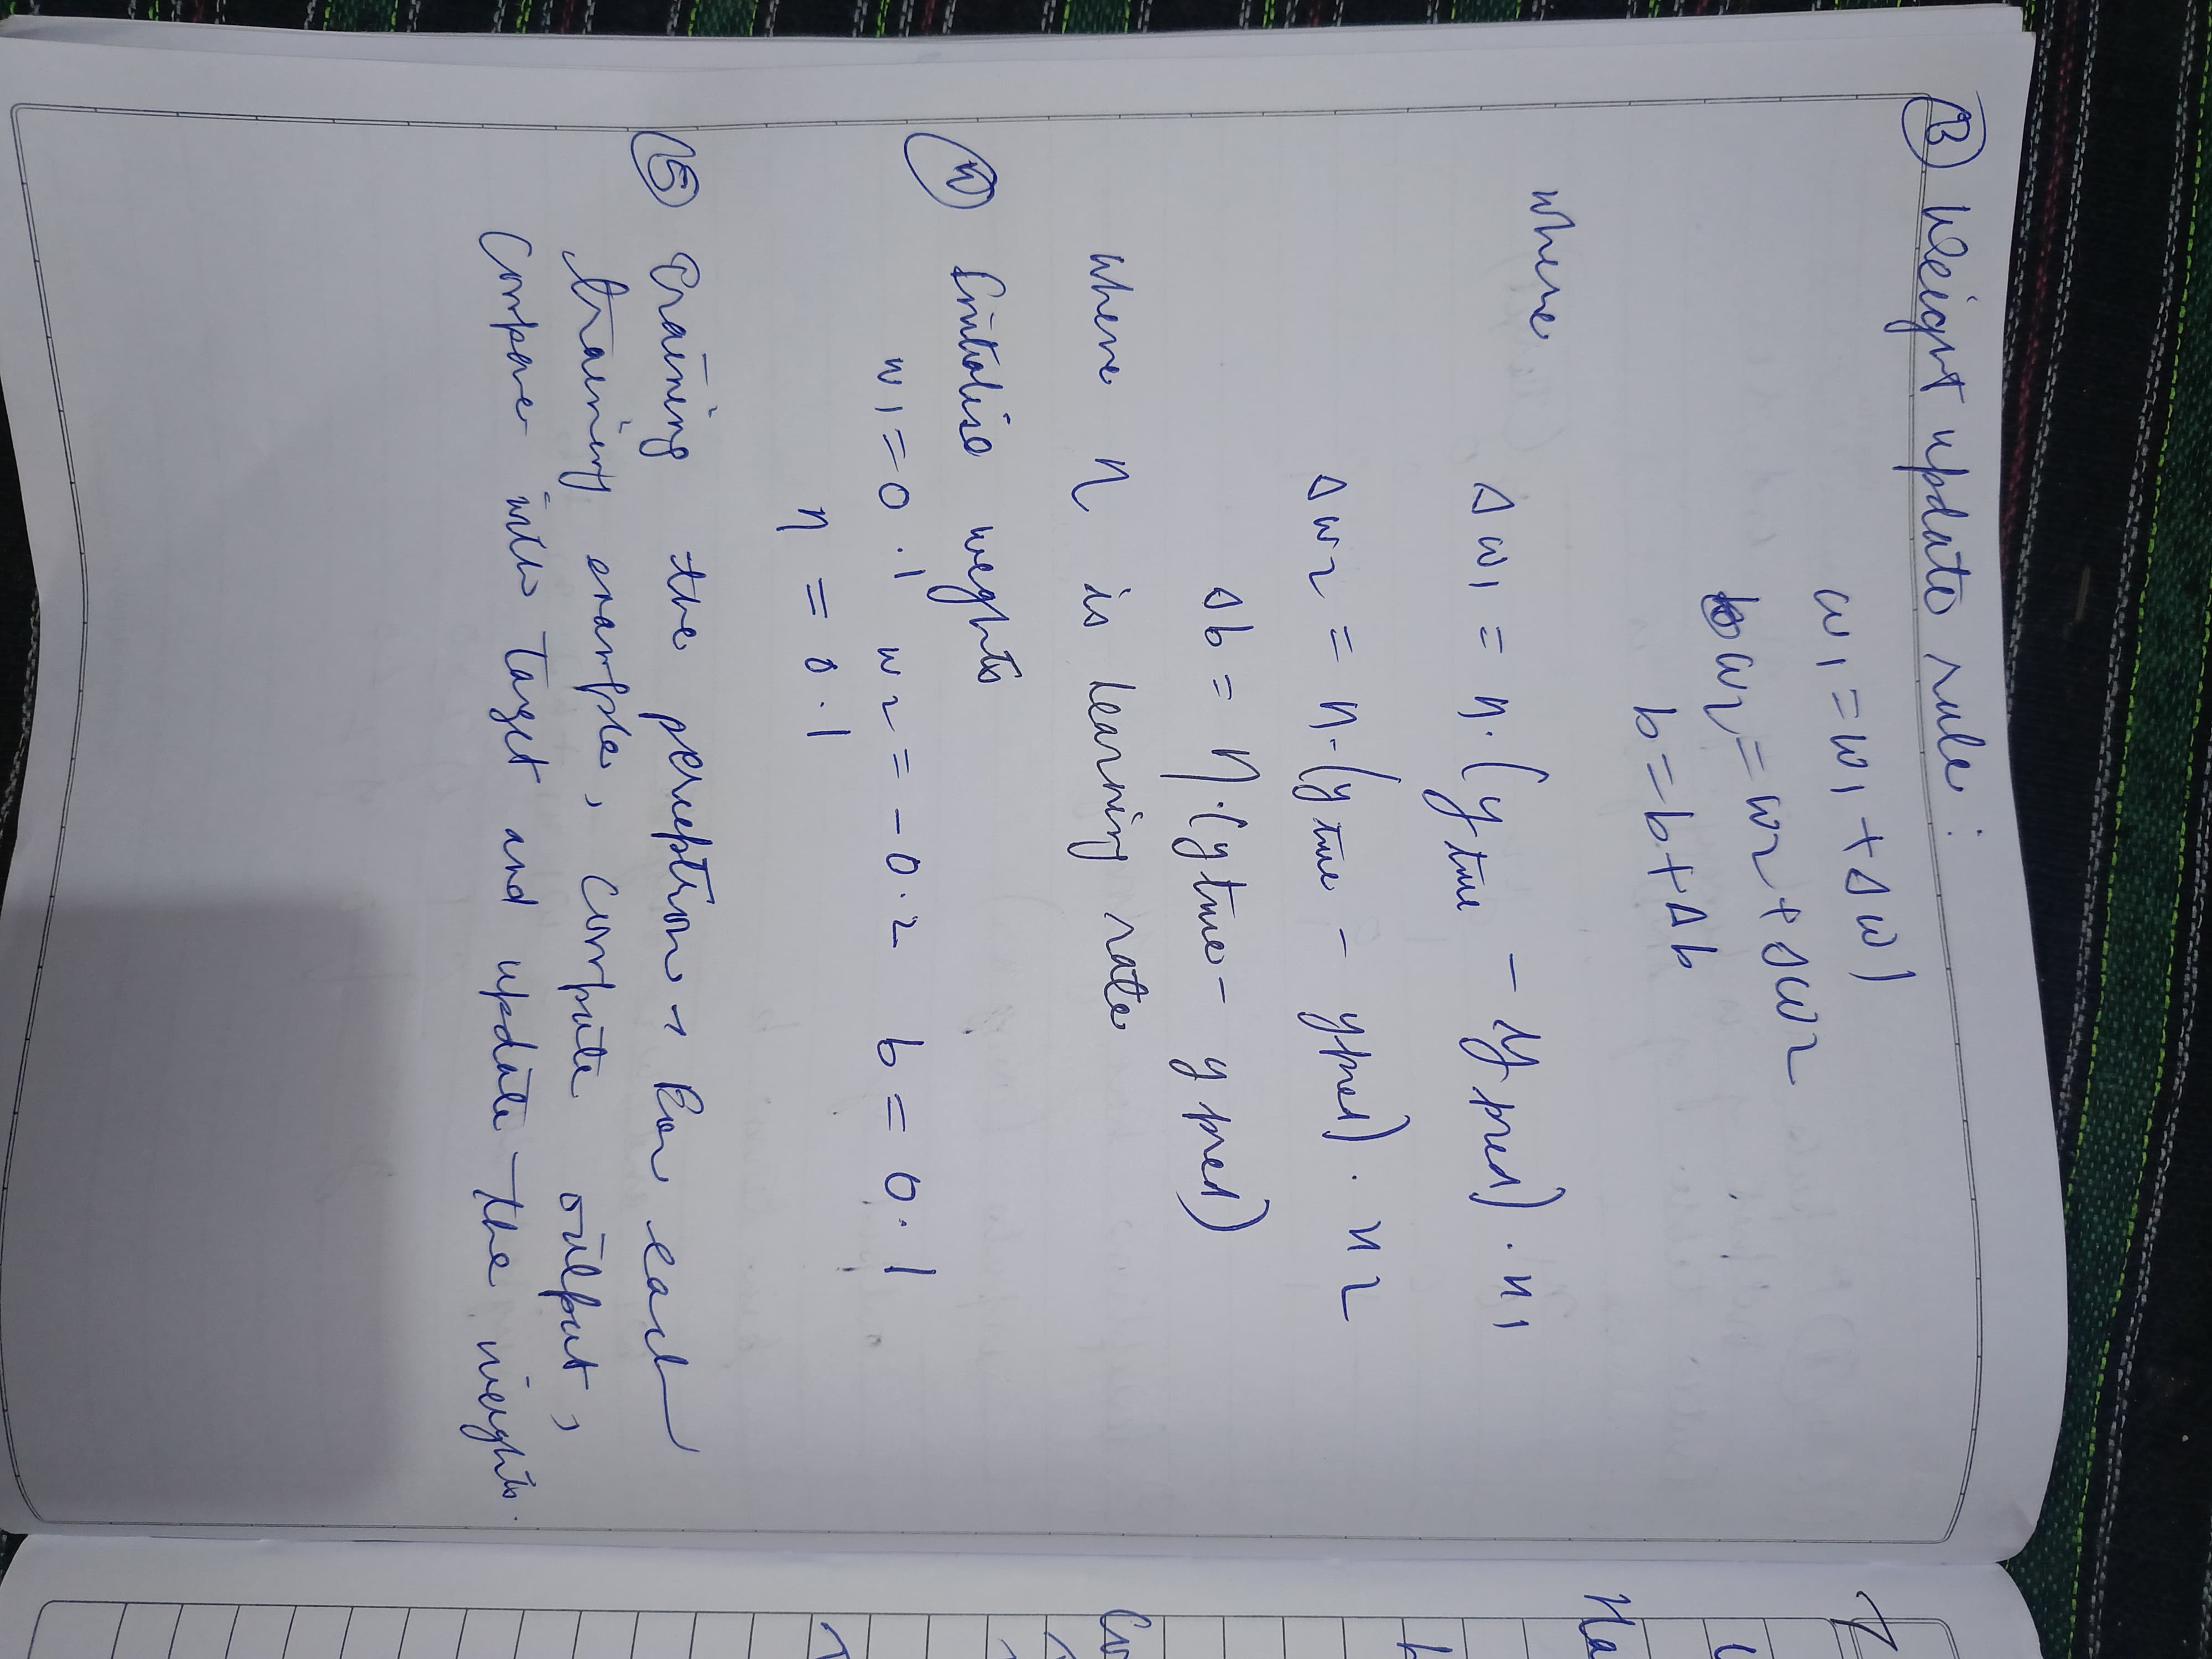 ③ Weight update rule :
w1 = w1 + Δw1
w2 = w2 + Δw2
b = b + Δb
where
Δw1 = η. (y true - y pred) . x1
Δw2 = η. (y true - y pred) . x2
Δb = η. (y true - y pred)
where η is learning rate
④ Initialise weghts
w1 = 0.1 w2 = -0.2 b = 0.1
η = 0.1
⑤ Training the perceptron → For each
training example, compute output,
compare with target and update the weights.
Ha